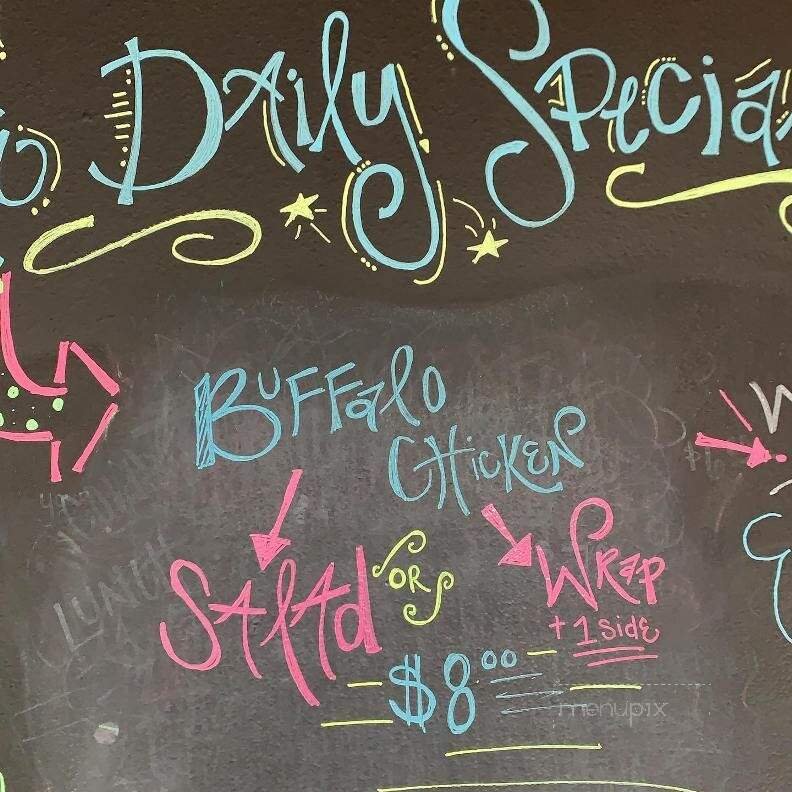 Daily Specia
Buffalo
Chicken
Salad or Wrap
+ 1 side
$8.00
LUNCH
menupix